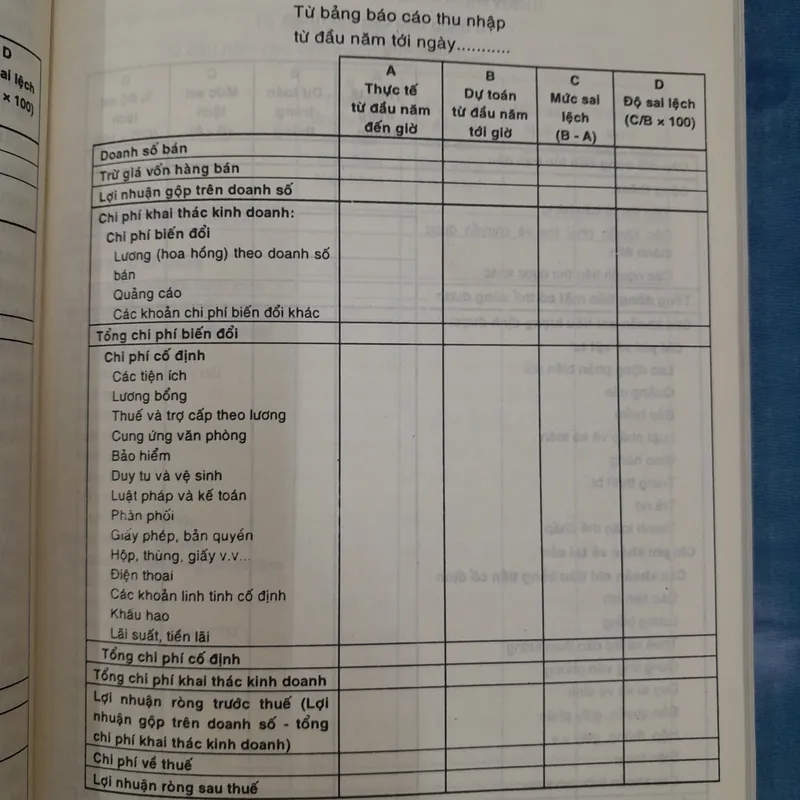 D
ai lệch
× 100)
Từ bảng báo cáo thu nhập
từ đầu năm tới ngày...........
A
Thực tế
từ đầu năm
đến giờ
B
Dự toán
từ đầu năm
tới giờ
C
Mức sai
lệch
(B - A)
D
Độ sai lệch
(C/B × 100)
Doanh số bán
Trừ giá vốn hàng bán
Lợi nhuận gộp trên doanh số
Chi phí khai thác kinh doanh:
Chi phí biến đổi
Lương (hoa hồng) theo doanh số
bán
Quảng cáo
Các khoản chi phí biến đổi khác
Tổng chi phí biến đổi
Chi phí cố định
Các tiện ích
Lương bổng
Thuế và trợ cấp theo lương
Cung ứng văn phòng
Bảo hiểm
Duy tu và vệ sinh
Luật pháp và kế toán
Phân phối
Giấy phép, bản quyền
Hộp, thùng, giấy v.v...
Điện thoại
Các khoản linh tinh cố định
Khấu hao
Lãi suất, tiền lãi
Tổng chi phí cố định
Tổng chi phí khai thác kinh doanh
Lợi nhuận ròng trước thuế (Lợi
nhuận gộp trên doanh số - tổng
chi phí khai thác kinh doanh)
Chi phí về thuế
Lợi nhuận ròng sau thuế